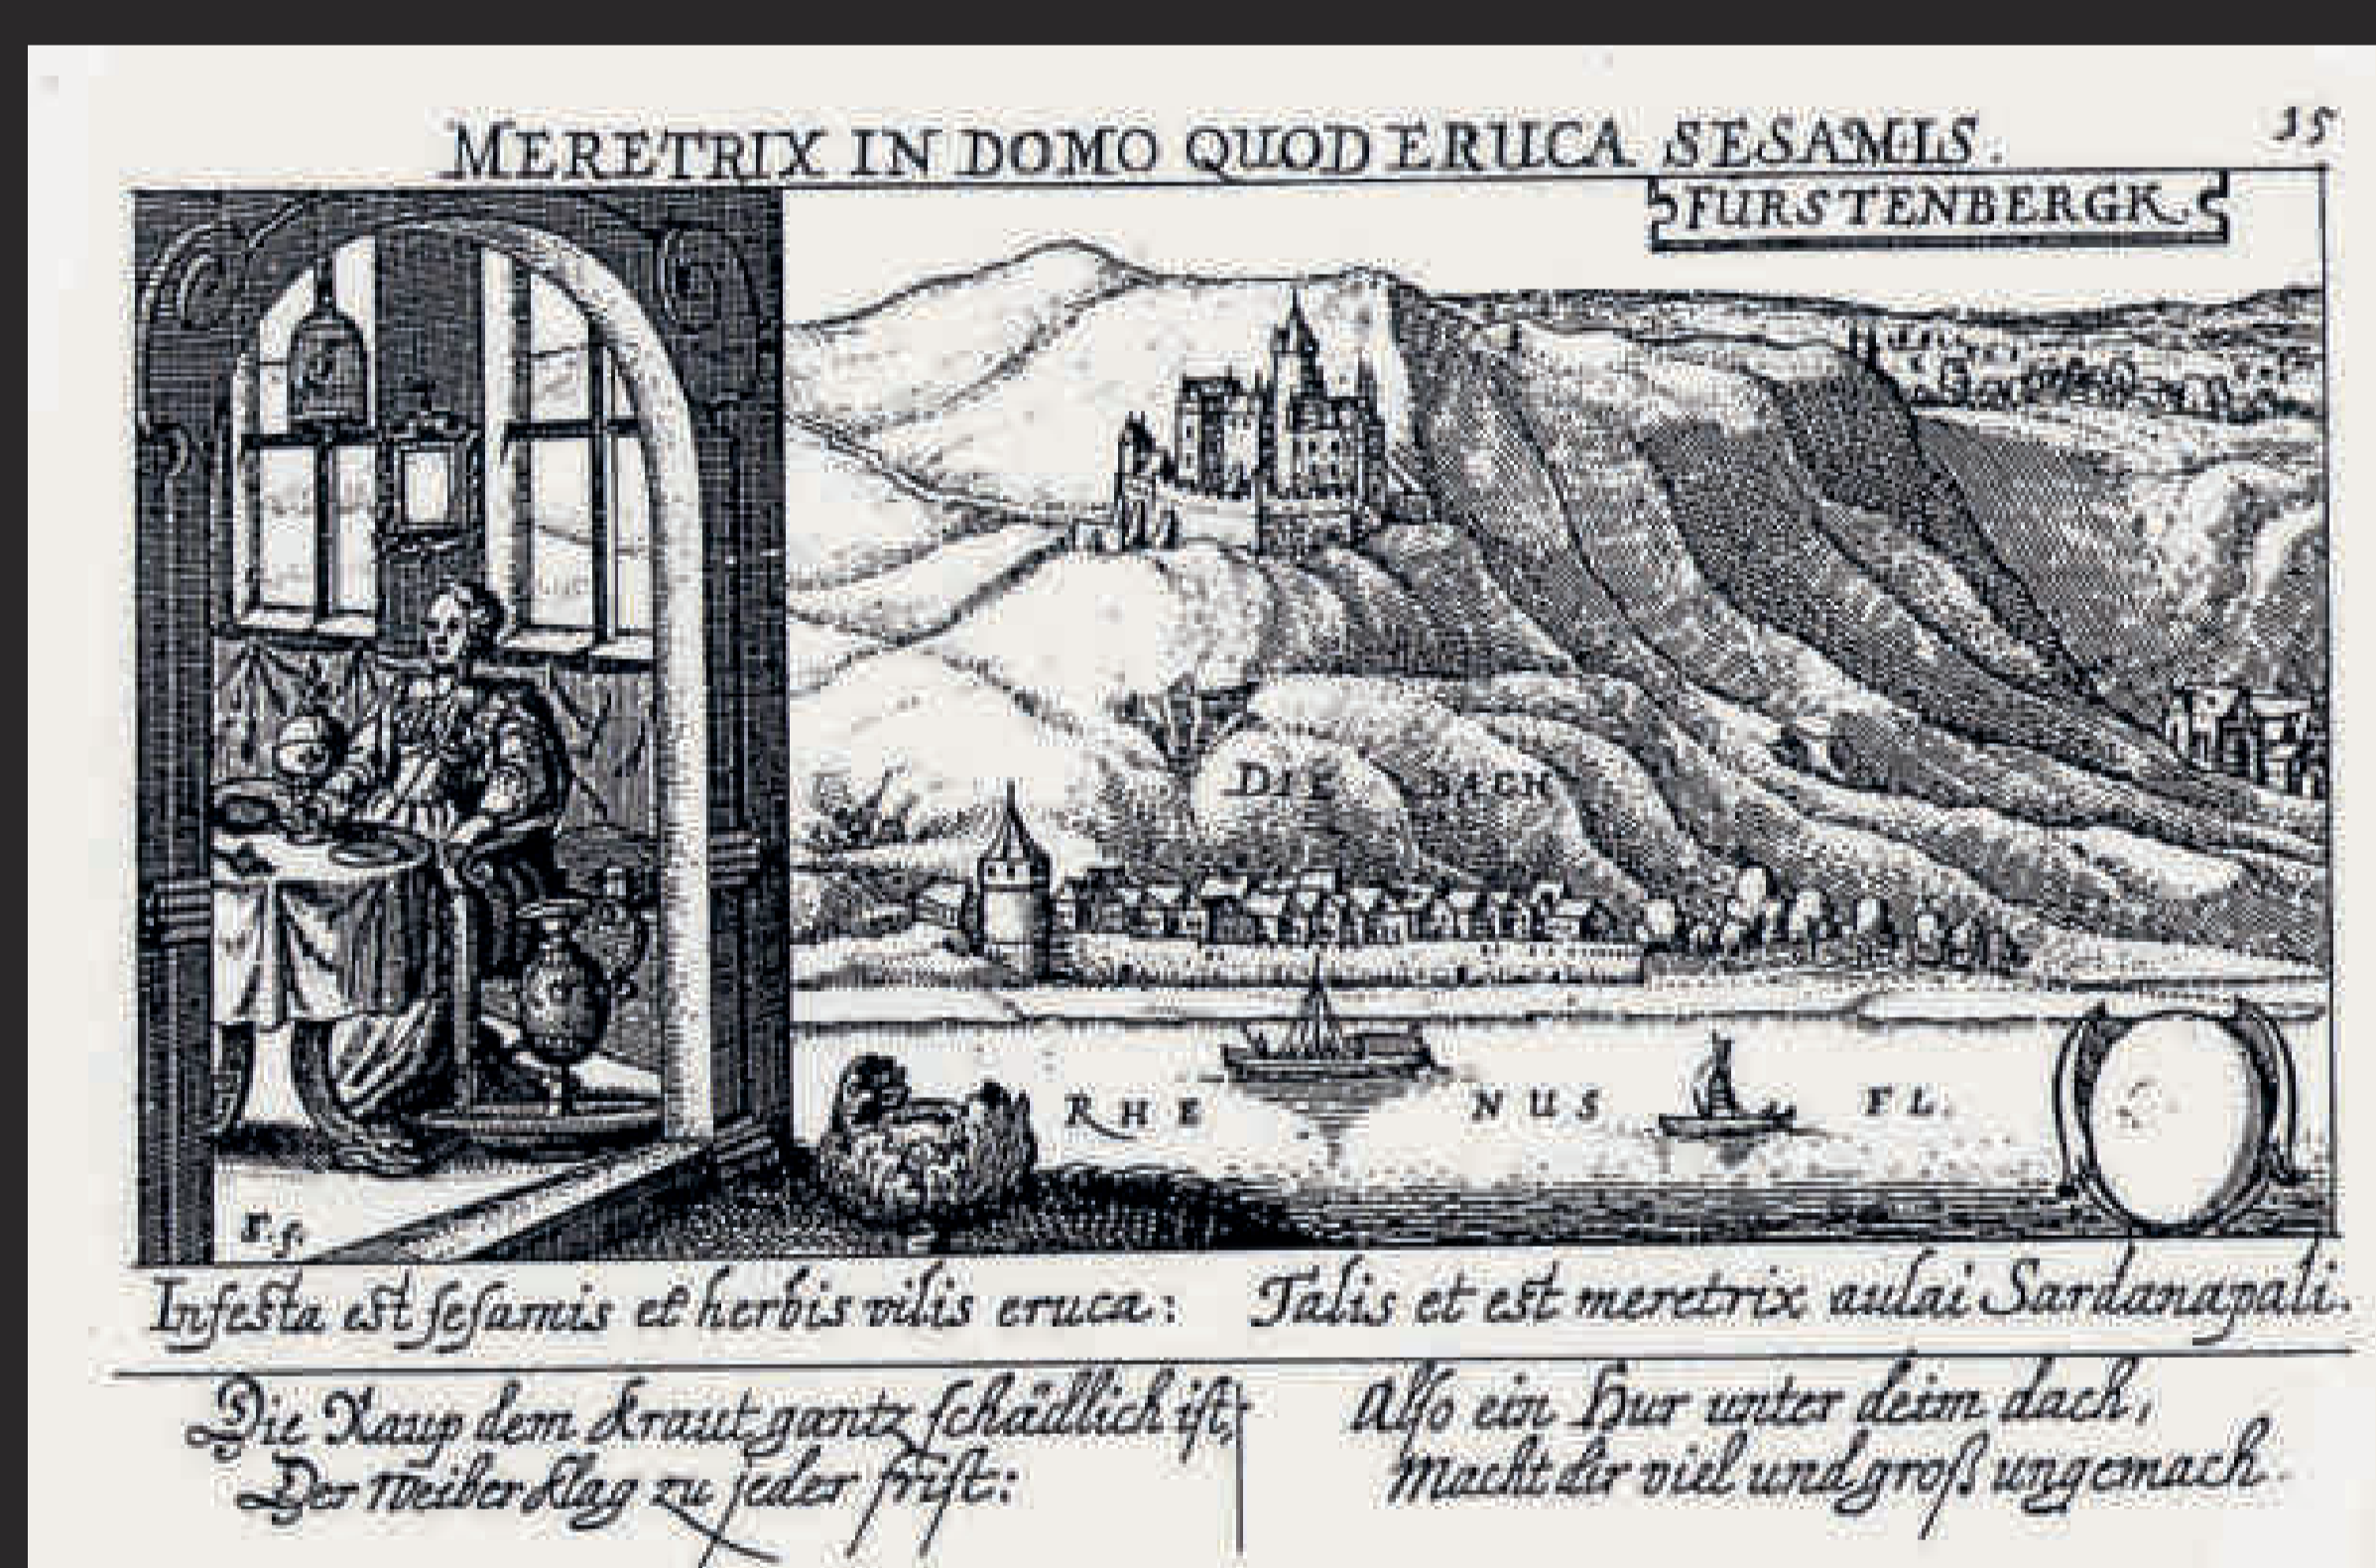 MERETRIX IN DOMO QUOD ERUCA SESAMIS.
15
FURSTENBERGK
DIE BACH
RHE NUS FL.
F.5.
Infesta est sesamis et herbis vilis eruca: Talis et est meretrix aulai Sardanapali.
Die Raup dem Kraut gantz schädlich ist, Also ein Hur unter deim dach,
Der Weiber Klag zu jeder frist: Macht dir viel und groß ungemach.